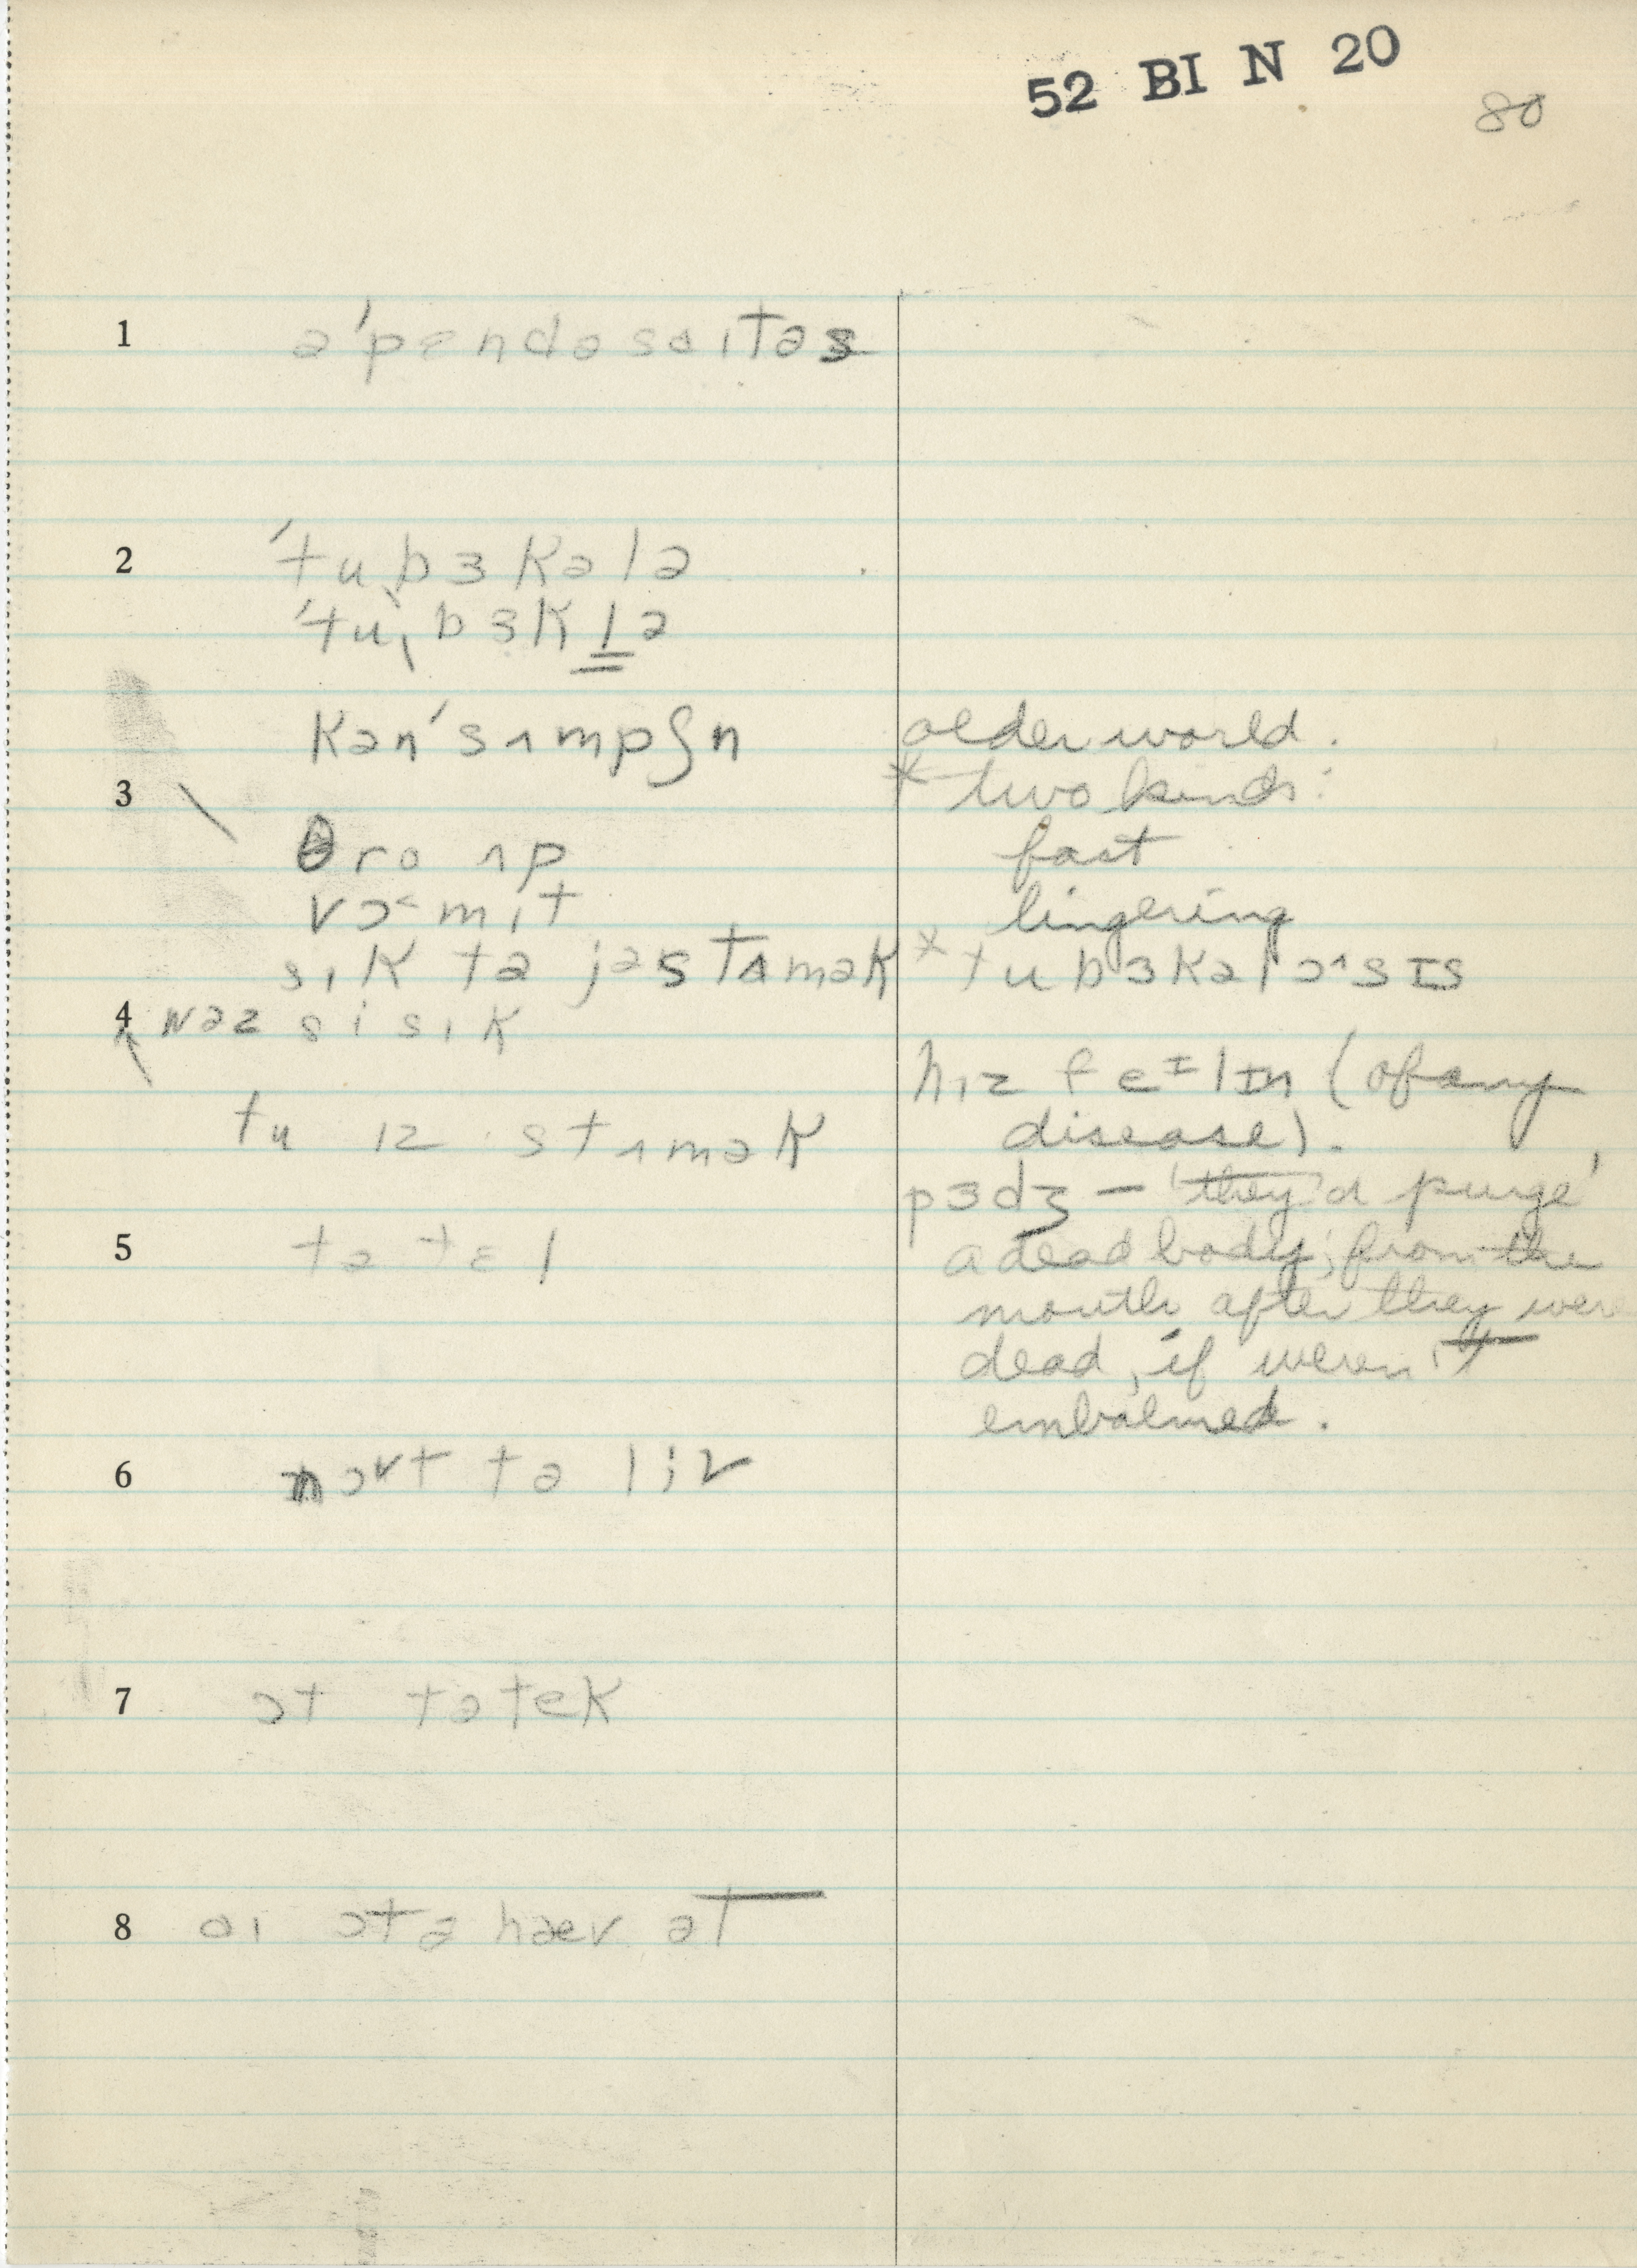 52 BI N 20
80
1 ə'pɛndəsaɪtəs
2 'tu,bɜkələ
'tu,bɜkl̳ə
kən'sʌmpʃn
older word.
* two kinds:
3
θro ʌp
fast
vɔmɪt
lingering
sɪk tə jəstʌmək
* tubɜkəlɔsɪs
4 wəz si sɪk
hɪz feɪlɪn (of any
disease).
tu ɪz stʌmək
pɜdʒ — 'they'd purge'
a dead body; from the
mouth after they were
dead, if weren't
embalmed.
5 tə tɛl
6 nɔt tə liv
7 ɔt tə tek
8 aɪ ɔtə hæv ət